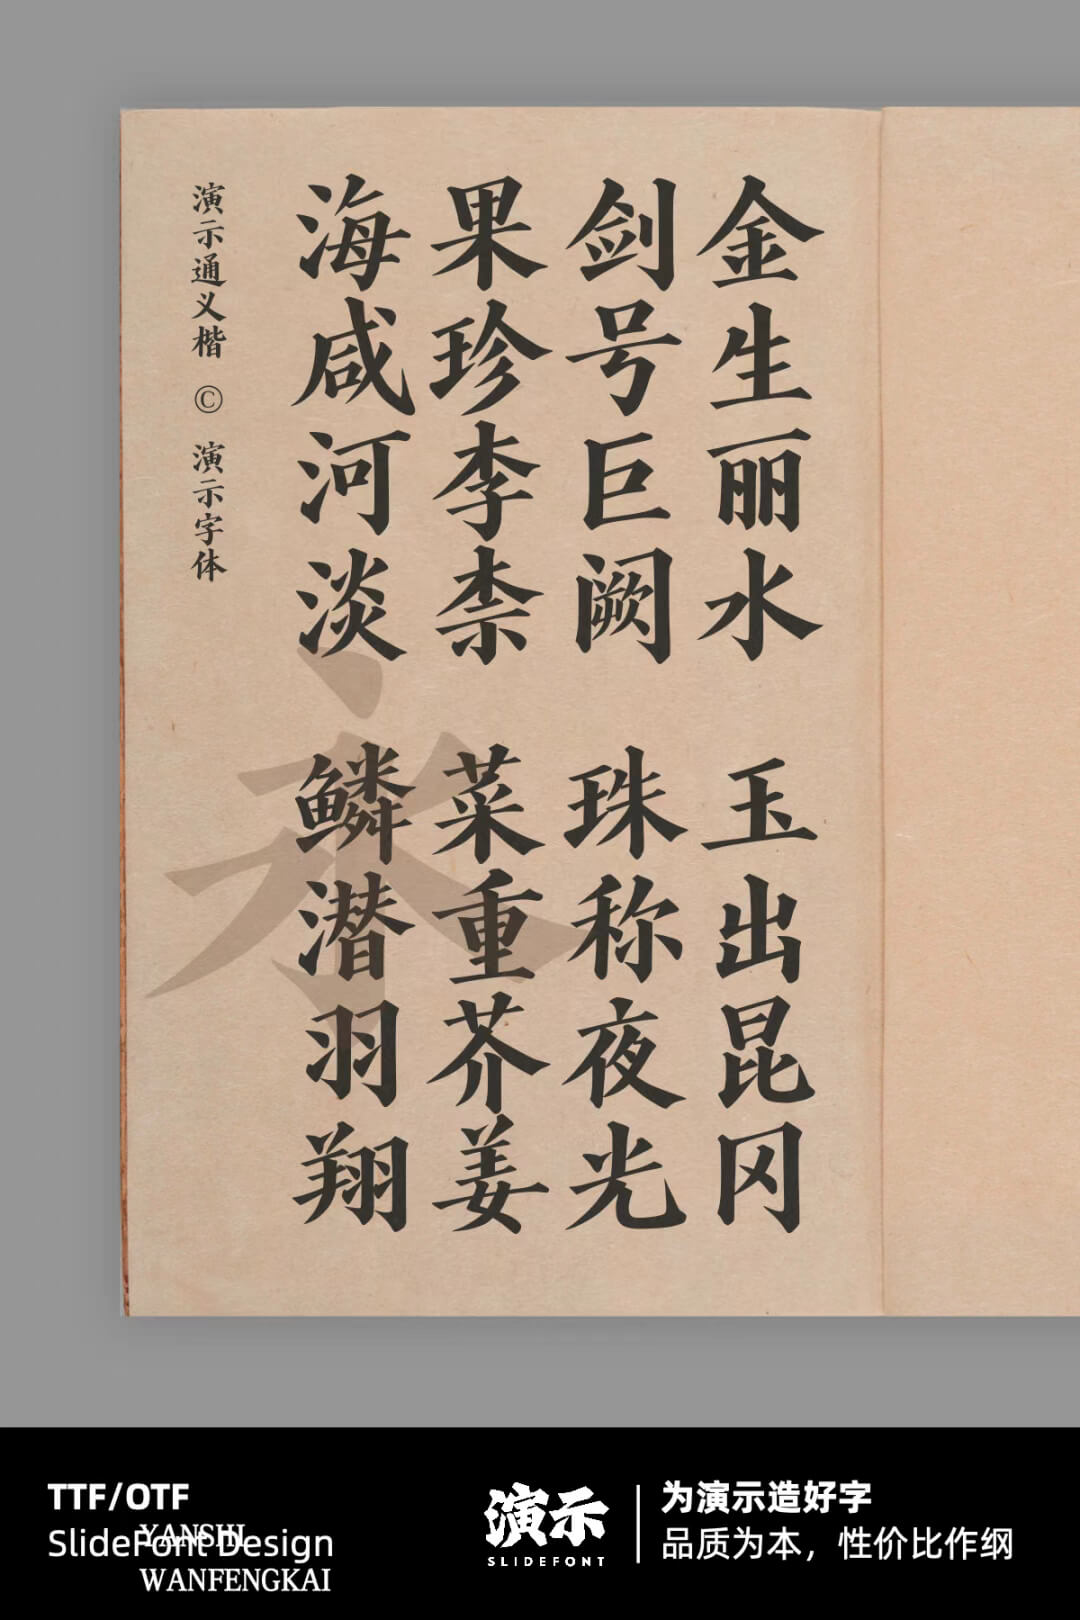 金生丽水 玉出昆冈
剑号巨阙 珠称夜光
果珍李柰 菜重芥姜
海咸河淡 鳞潜羽翔
演示通义楷 © 演示字体
永
TTF/OTF
SlideFont Design
YANSHI
WANFENGKAI
演示
SLIDEFONT
为演示造好字
品质为本，性价比作纲